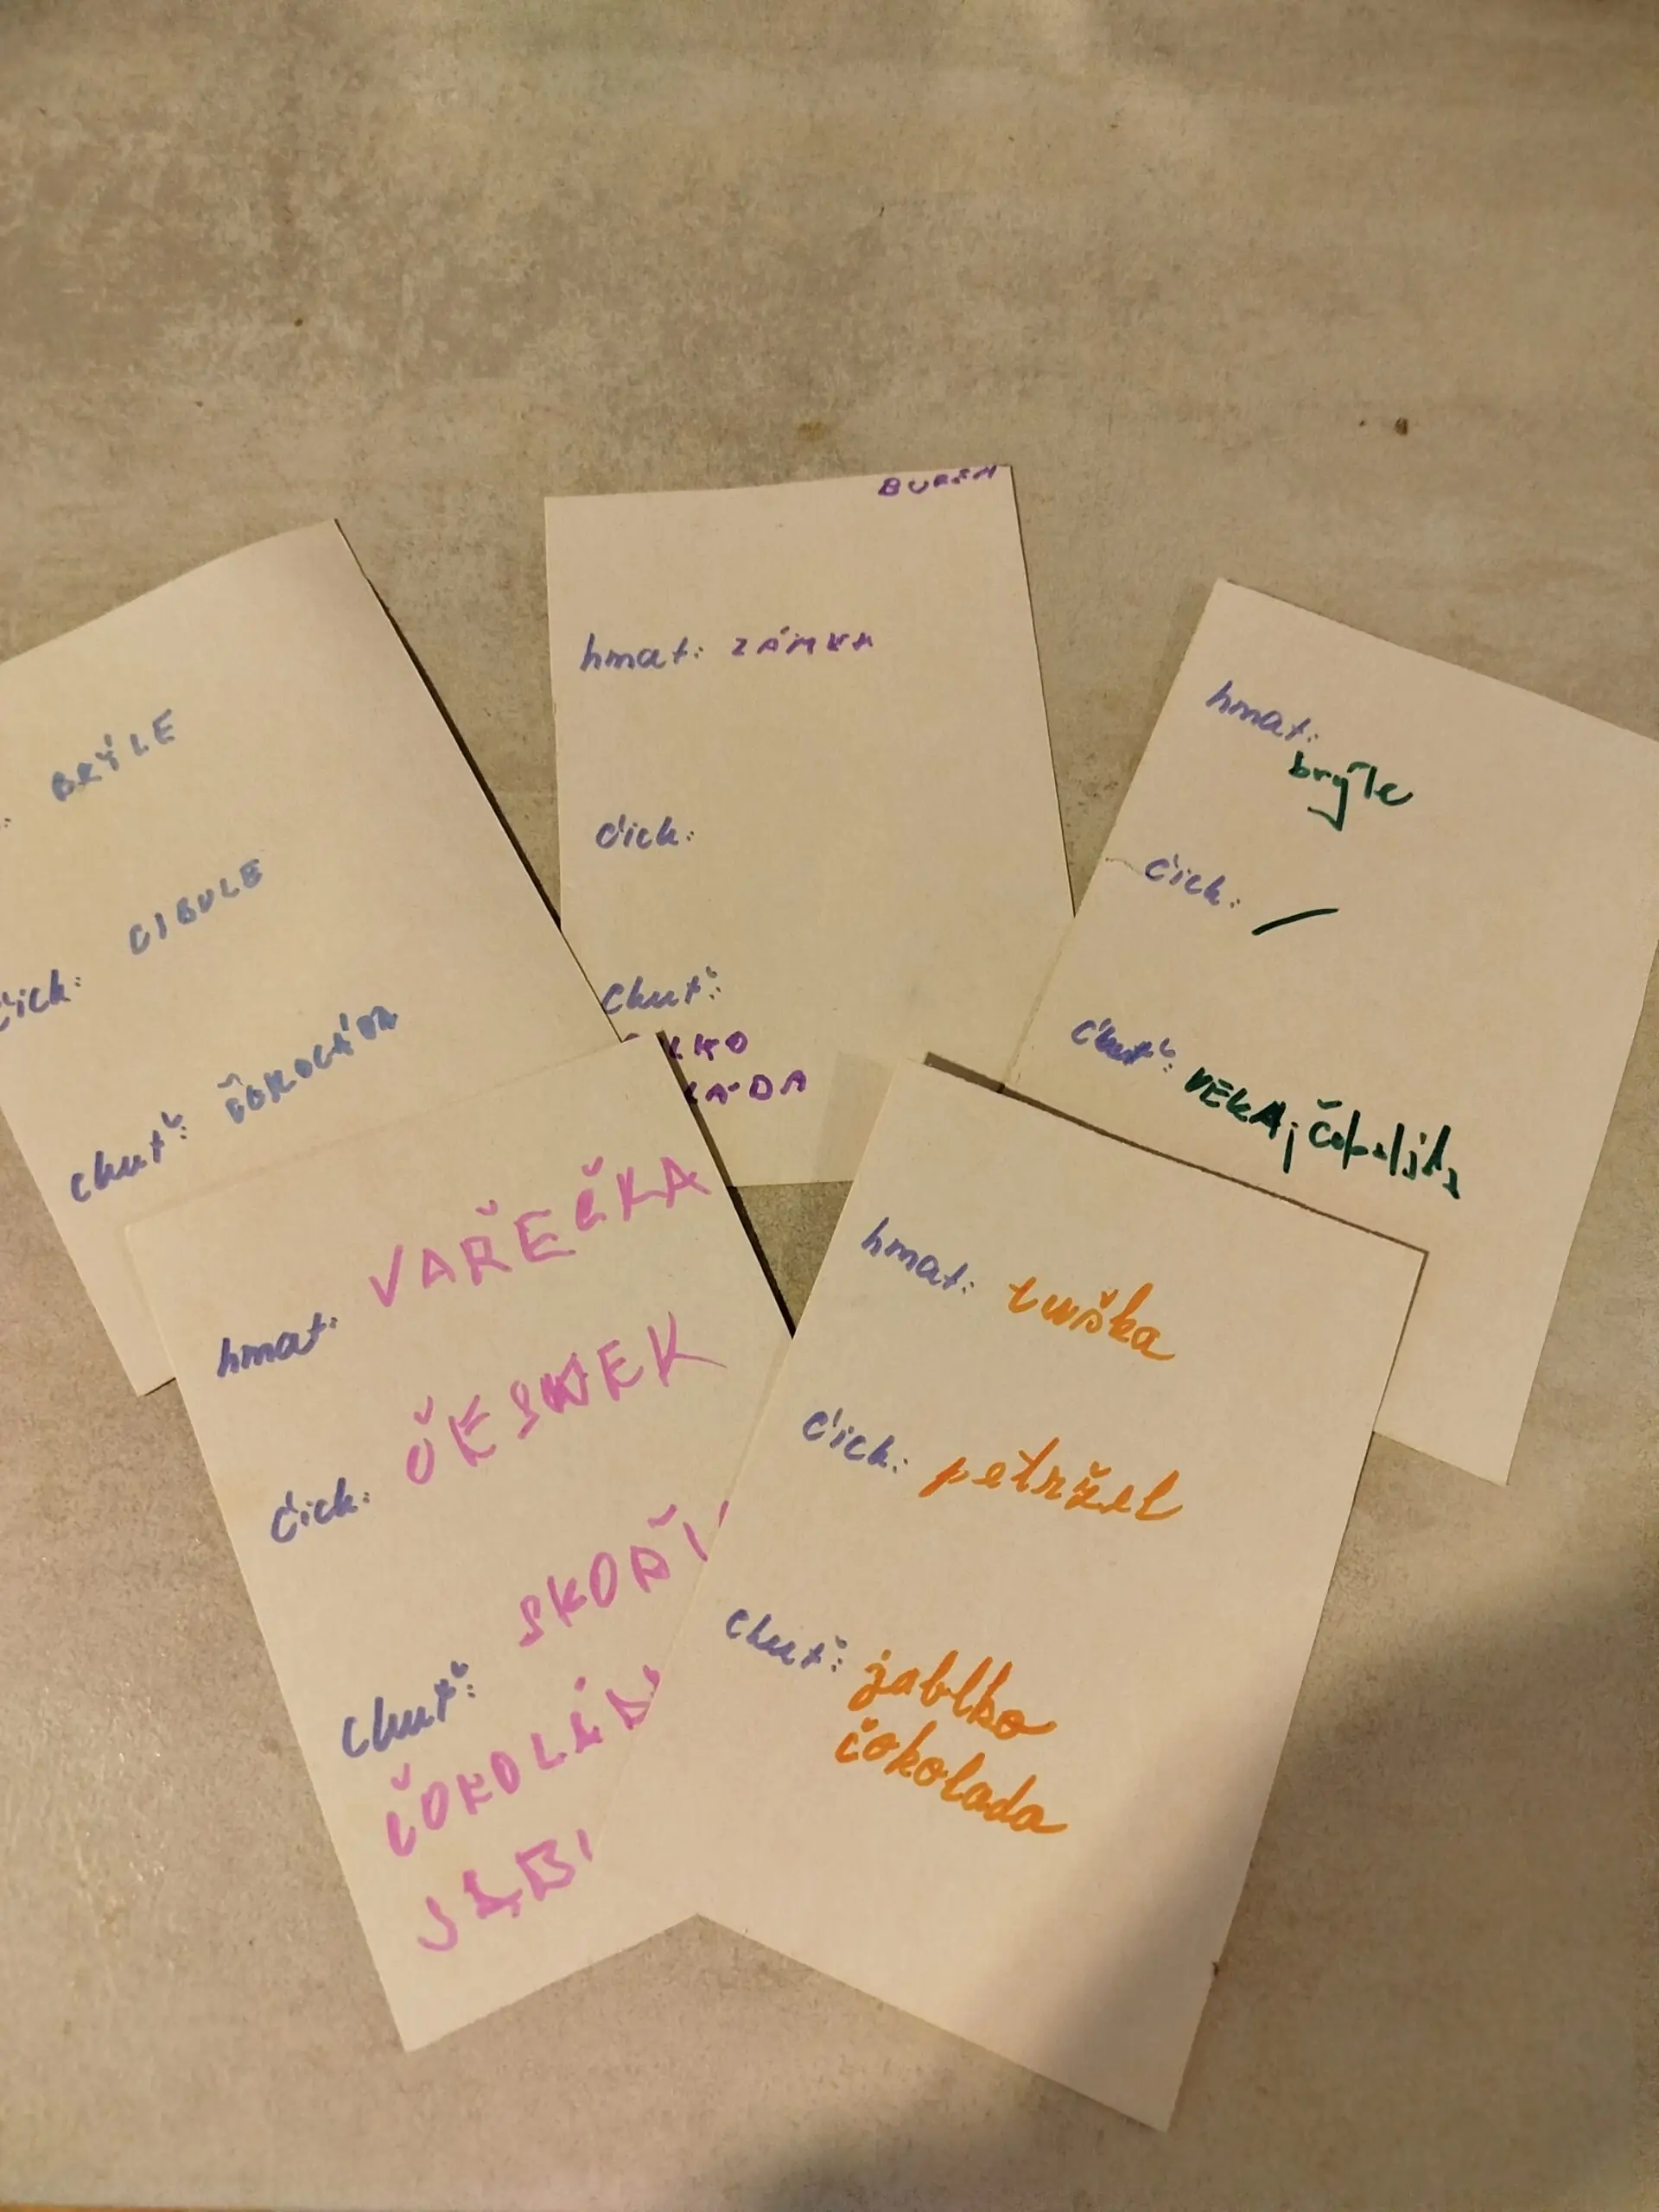 BRÝLE
čich: CIBULE
chuť: ČOKOLÁDA
hmat: ZÁMEK
čich:
chuť:
hmat:
brýle
čich: /
chuť: VEKA,
hmat: VAŘEČKA
čich: ČESNEK
chuť: SKOŘI
ČOKOLÁD
JAB
hmat: tuška
čich: petržel
chuť: jablko
čokolada